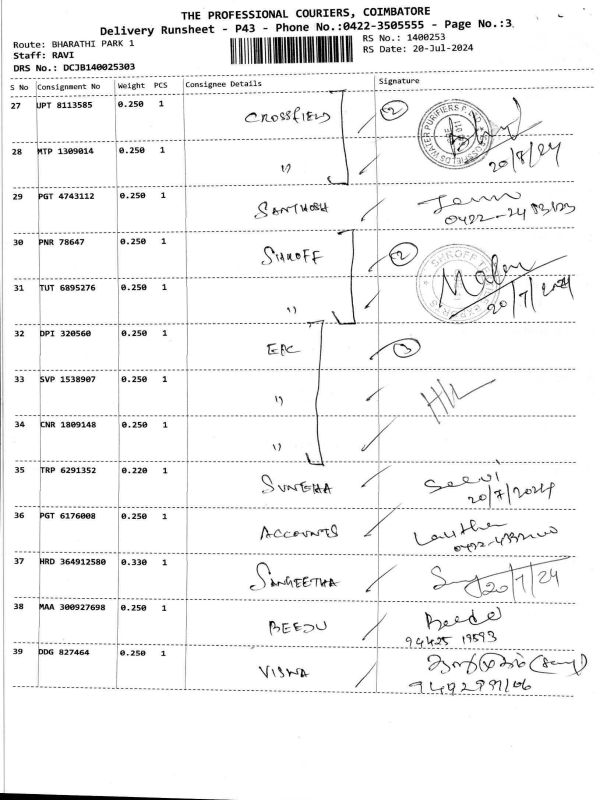 THE PROFESSIONAL COURIERS, COIMBATORE
Delivery Runsheet - P43 - Phone No.:0422-3505555 - Page No.:3
Route: BHARATHI PARK 1
RS No.: 1400253
Staff: RAVI
RS Date: 20-Jul-2024
DRS No.: DCJB140025303
S No Consignment No Weight PCS Consignee Details Signature
27 UPT 8113585 0.250 1 CROSSFIELD 2
28 MTP 1309014 0.250 1 " 20/8/24
29 PGT 4743112 0.250 1 SANTHOSH
30 PNR 78647 0.250 1 SHROFF 2
31 TUT 6895276 0.250 1 " 20/7/2024
32 DPI 320560 0.250 1 EPC 3
33 SVP 1538907 0.250 1 "
34 CNR 1809148 0.250 1 "
35 TRP 6291352 0.220 1 SUNEHA Selvi
20/7/2024
36 PGT 6176008 0.250 1 ACCOUNTS
37 HRD 364912580 0.330 1 SANGEETHA 20/7/24
38 MAA 300927698 0.250 1 BEEDU Beedu
94425 19593
39 DDG 827464 0.250 1 VISWA